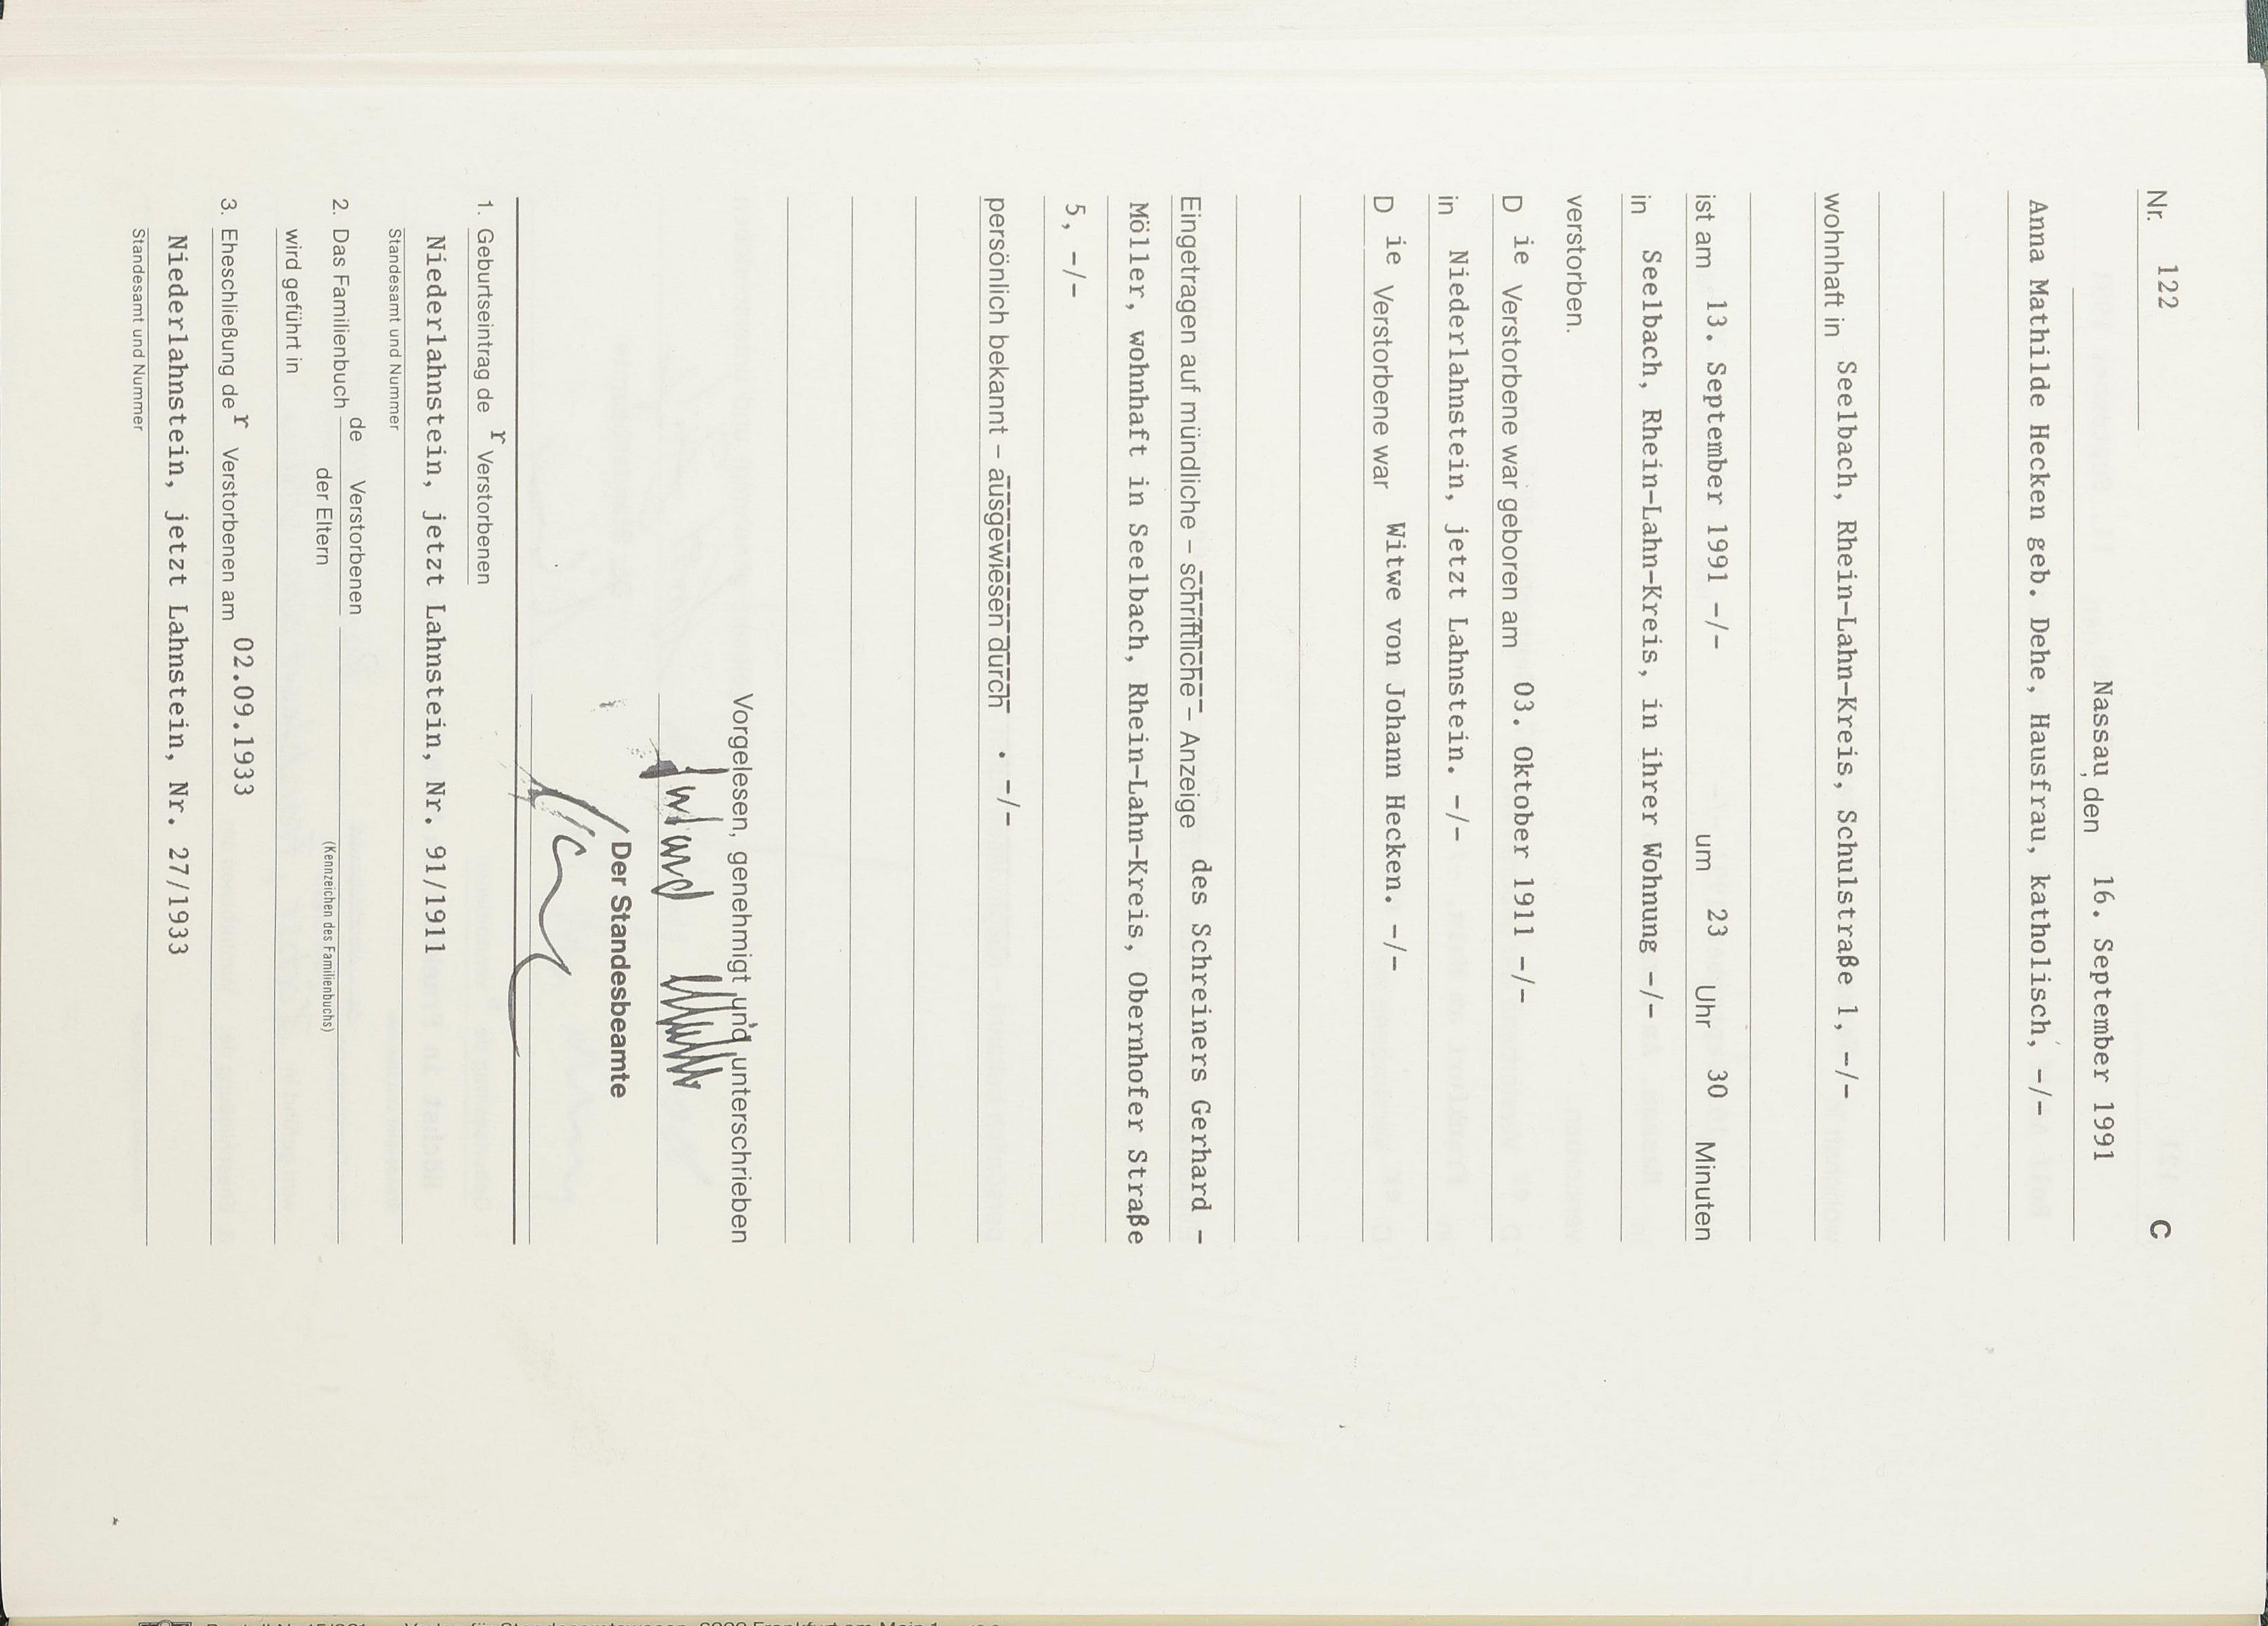 Nr. 122 C
Nassau, den 16. September 1991
Anna Mathilde Hecken geb. Dehe, Hausfrau, katholisch, -/-
wohnhaft in Seelbach, Rhein-Lahn-Kreis, Schulstraße 1, -/-
ist am 13. September 1991 -/- um 23 Uhr 30 Minuten
in Seelbach, Rhein-Lahn-Kreis, in ihrer Wohnung -/-
verstorben.
D ie Verstorbene war geboren am 03. Oktober 1911 -/-
in Niederlahnstein, jetzt Lahnstein. -/-
D ie Verstorbene war Witwe von Johann Hecken. -/-
Eingetragen auf mündliche – schriftliche – Anzeige des Schreiners Gerhard -
Möller, wohnhaft in Seelbach, Rhein-Lahn-Kreis, Obernhofer Straße
5, -/-
persönlich bekannt – ausgewiesen durch . -/-
Vorgelesen, genehmigt und unterschrieben
Der Standesbeamte
1. Geburtseintrag de r Verstorbenen
Niederlahnstein, jetzt Lahnstein, Nr. 91/1911
Standesamt und Nummer
2. Das Familienbuch de Verstorbenen
der Eltern
(Kennzeichen des Familienbuchs)
wird geführt in
3. Eheschließung de r Verstorbenen am 02.09.1933
Niederlahnstein, jetzt Lahnstein, Nr. 27/1933
Standesamt und Nummer